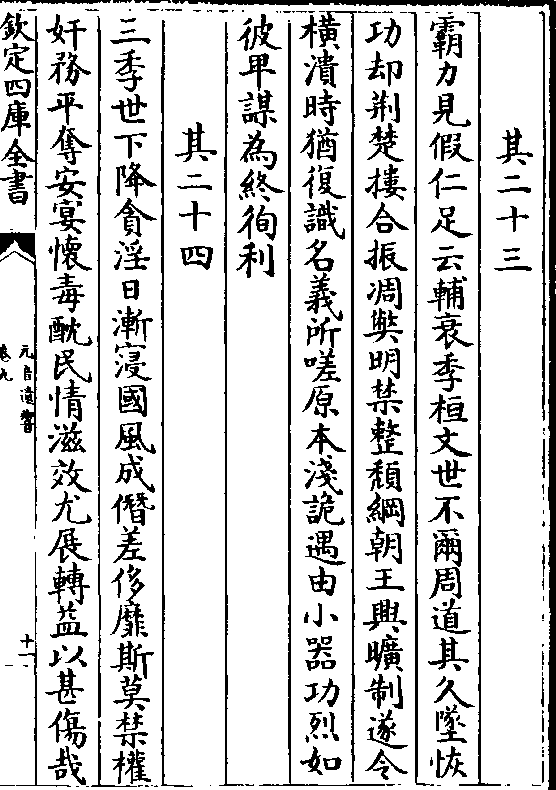 其二十三
霸力見假仁足云輔衰季桓文世不爾周道其久墜恢
功却荆楚摟合振凋獘明禁整頽綱朝王興曠制遂令
橫潰時猶復識名義所嗟原本淺詭遇由小器功烈如
彼卑謀為終徇利
其二十四
三季世下降貪淫日漸寖國風成僭差侈靡斯莫禁權
奸務平奪安宴懷毒酖民情滋效尤展轉益以甚傷哉
欽定四庫全書
元音遺響
卷九
十一